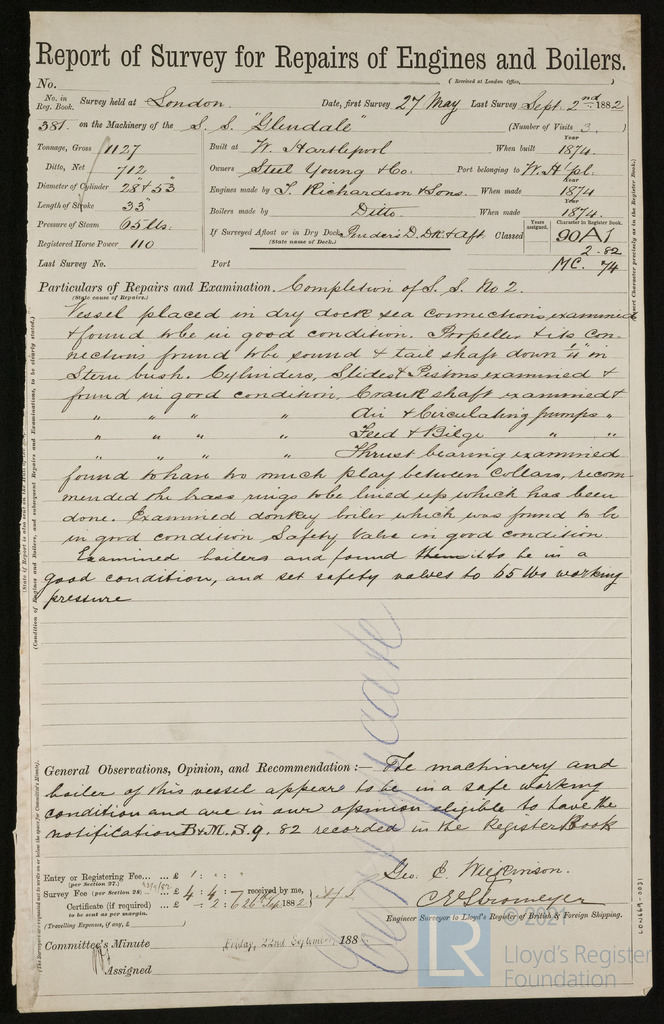 Report of Survey for Repairs of Engines and Boilers.
No.
(Received at London Office,
No. in Reg. Book. Survey held at London. Date, first Survey 27 May Last Survey Sept. 2nd 1882
381. on the Machinery of the S. S. "Glendale" (Number of Visits 3.)
Tonnage, Gross 1127
Ditto, Net 712
Diameter of Cylinder 28" & 53"
Length of Stroke 33"
Pressure of Steam 65 lbs.
Registered Horse Power 110
Built at W. Hartlepool When built Year 1874.
Owners Steel Young & Co. Port belonging to W. H'pl.
Engines made by T. Richardson & Sons. When made Year 1874
Boilers made by Ditto. When made 1874.
If Surveyed Afloat or in Dry Dock D. Dk & Aft. Classed
(State name of Dock.)
Years assigned. Character in Register Book.
90A1
2.82
MC. 7/4
Last Survey No. Port
Particulars of Repairs and Examination. Completion of S. S. No 2.
(State cause of Repairs.)
Vessel placed in dry dock sea connections examined
& found to be in good condition. Propeller & its con-
nections found to be sound & tail shaft down in
Stern bush. Cylinders, Slides & Pistons examined &
found in good condition, Crank shaft examined &
" " " " Air & Circulating pumps "
" " " " Feed & Bilge " "
" " " " Thrust bearing examined
found to have too much play between collars, recom-
mended the brass rings to be lined up which has been
done. Examined donkey boiler which was found to be
in good condition Safety Valve in good condition
Examined boilers and found them to be in a
good condition, and set safety valves to 65 lbs working
pressure
General Observations, Opinion, and Recommendation:— The machinery and
boiler of this vessel appear to be in a safe working
condition and are in our opinion eligible to have the
notification B & M. S. 9. 82 recorded in the Register Book
Entry or Registering Fee... ... £ 1 : " : "
(per Section 27.)
Survey Fee (per Section 28) ... £ 4 : 4 : – received by me,
Certificate (if required) ... – : 2 : 6 1882
to be sent as per margin.
(Travelling Expenses, if any, £ )
Geo. C. Wilkinson.
C E Stromeyer
Engineer Surveyor to Lloyd's Register of British & Foreign Shipping.
Committee's Minute Friday, 22nd September 188
Assigned
Certificate
LON669-0031
© 2021
LR
Lloyd's Register
Foundation